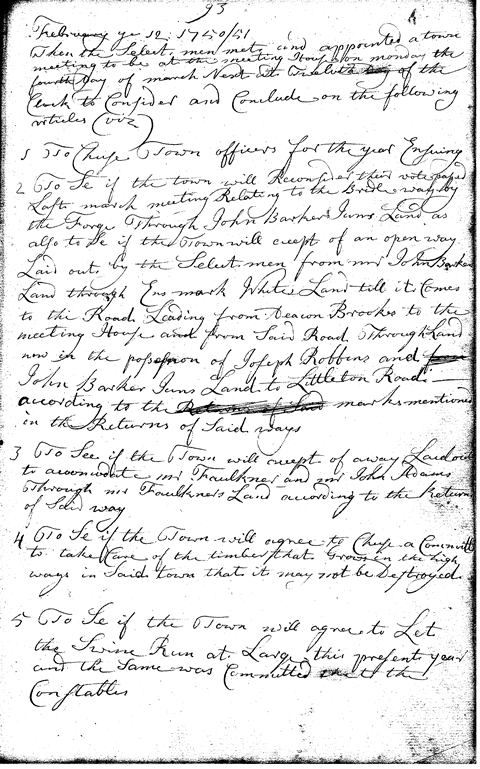 93
February ye 12: 1750/51
Then the Select men met and appointed a town
meeting to be at the meeting House on monday the
fourth Day of march Next at Twelve of the
Clock to Consider and Conclude on the following
articles (viz)
1 To Chuse Town officers for the year Ensuing
2 To Se if the town will Reconsider their vote passed
Last march meeting Relating to the Bridle way by
the Forge Through John Barker Juns Land as
also to se if the Town will except of an open way
Laid out by the Select men from mr John Barker
Land through Ens mark Whites Land till it Comes
to the Road Leading from Deacon Brooks to the
meeting House and from Said Road Through Land
now in the possession of Joseph Robbins and
John Barker Juns Land to Littleton Road
according to the Returns of Said marks mentioned
in the Returns of Said ways
3 To See if the Town will except of a way Laid out
to accomodate mr Faulkner and mr John Adams
Through mr Faulkners Land according to the Return
of Said way
4 To Se if the Town will agree to Chuse a Committ
to take Care of the timber that Grows in the high
ways in Said town that it may not be Destroyed
5 To Se if the Town will agree to Let
the Swine Run at Large this present year
and the Same was Committed to the
Constables